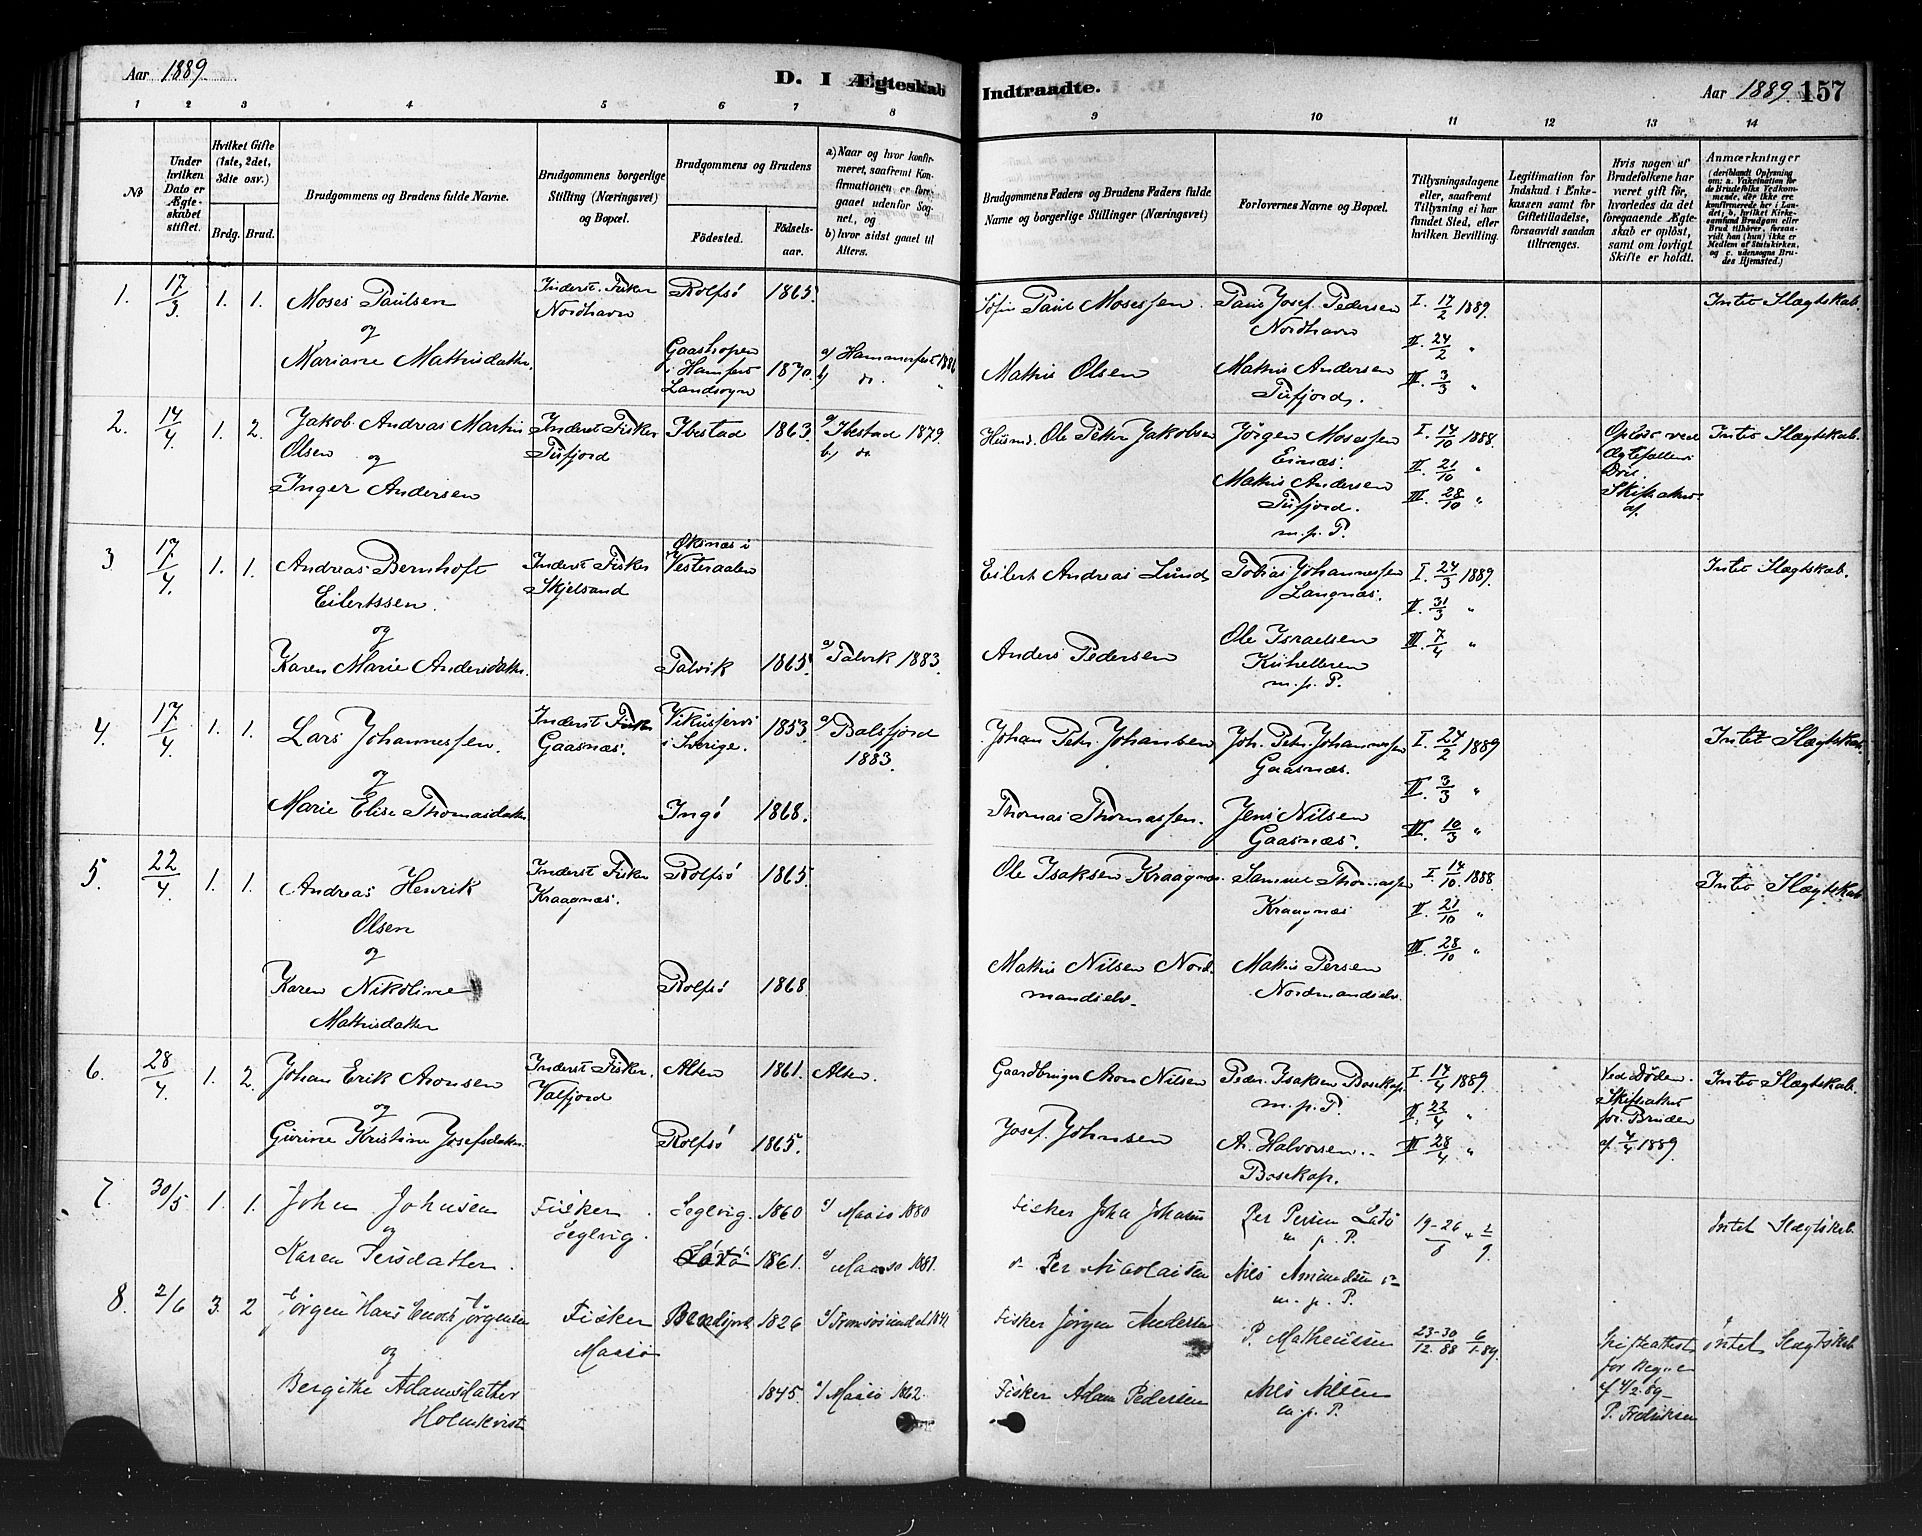 Aar 1889
D. I Ægteskab
Indtraadte.
Aar 1889. 157
1 2 3 4 5 6 7 8
9 10 11 12 13 14
No
Under hvilken Dato er Ægteskabet stiftet.
Hvilket Gifte (1ste, 2det, 3die osv.)
Brdg. Brud.
Brudgommens og Brudens fulde Navne.
Brudgommens borgerlige Stilling (Næringsvei) og Bopæl.
Brudgommens og Brudens
Fødested. Fødselsaar.
a) Naar og hvor konfirmeret, saafremt Konfirmationen er foregaaet udenfor Sognet, og
b) hvor sidst gaaet til Alters.
Brudgommens Faders og Brudens Faders fulde Navne og borgerlige Stillinger (Næringsvei)
Forlovernes Navne og Bopæl.
Tillysningsdagene eller, saafremt Tillysning ei har fundet Sted, efter hvilken Bevilling.
Legitimation for Indskud i Enkekassen samt for Giftetilladelse, forsaavidt saadan tiltrænges.
Hvis nogen af Brudefolkene har været gift før, hvorledes da det foregaaende Ægteskab er opløst, samt om lovligt Skifte er holdt.
Anmærkninger
(deriblandt Oplysning om: a. Vakcination for de Brudefolks Vedkommende, der ikke ere konfirmerede her i Landet; b. hvilket Kirkesamfund Brudgom eller Brud tilhører, forsaavidt han (hun) ikke er Medlem af Statskirken, og c. udensogns Brudes Hjemsted.)
1. 17/3 1. 1. Moses Paulsen Inderst. Fisker Nordhavn Rolfsø 1865.
og
Mariane Mathisdatter. Gaashopen i Hamferst Landsogn 1870. a) Hammerfest 1886 b) do. "
Paul Mosessen. Paul Josef. Pedersen Nordhavn I. 17/2 1889. Intet Slægtskab.
II. 24/2 "
Mathis Olsen Mathis Andersen Tufjord. III. 3/3 "
2. 14/4 1. 2. Jakob Andreas Martin Olsen Inderst Fisker Tufjord Ibestad 1863. a) Ibestad 1879. b) do
og
Inger Andersen
Husmd. Ole Peter Jakobsen Jørgen Mosessen Einæs. I. 14/10 1888. Opløst ved Ægtefællens Død. Skifteattest af. Intet Slægtskab.
II. 21/10 "
Mathis Andersen Tufjord. III. 28/10 "
m. p. P.
3 17/4. 1. 1. Andreas Bernhoft Eilertssen. Inderst Fisker Skjelsand Øksnæs i Vesteraalen
og
Karen Marie Andersdatter. Talvik 1865. a) Talvik 1883.
Eilert Andreas Lund Tobias Johannessen Langnæs. I. 24/3 1889. Intet Slægtskab.
II. 31/3 "
Anders Pedersen Ole Israelsen III. 7/4 "
m. p. P.
4. 17/4. 1. 1. Lars Johannessen. Inderst Fisker Gaasnæs. Vikusjervi i Sverige. 1853. a) Balsfjord 1883.
og
Marie Elise Thomasdatter. Ingø 1868.
Johan Petr. Johansen Joh. Petr. Johannessen Gaasnæs. I. 24/2 1889 Intet Slægtskab.
II. 3/3 "
Thomas Thomassen. Jens Nilsen Gaasnæs. III. 10/3 "
5. 22/4. 1. 1. Andreas Henrik Olsen Inderst Fisker Kraagnæs. Rolfsø 1865.
og
Karen Nikoline Mathisdatter Rolfsø 1868.
Ole Isaksen Kraagnæs. Sammul Thomassen Kraagnæs I. 14/10. 1888 Intet Slægtskab
II. 21/10 "
III. 28/10 "
Mathis Nilsen Nordmandselv. Mathis Persen Nordmandselv.
6. 28/4. 1. 2. Johan Erik Aronsen Inderst Fisker. Valfjord Alten 1861. Alten.
og
Gurine Kristine Josefsdatter. Rolfsø 1865.
Gaardbruger Aron Nilsen Peder. Isaksen Bosekop. m. p. P. I. 14/4 1889. Ved Døden. Skifteattest for Bruden af 4/4 1889. Intet Slægtskab.
II. 22/4 "
Josef. Johnsen A. Halvorsen Bosekop. III 28/4 "
7. 30/5 1. 1. John Johnsen Fisker Seglvig. Seglvig. 1860 a) Maasø 1880
og
Karen Persdatter. Latø 1861. a) Maasø 1881.
Fisker John Johnsen Per Persen Latø m. p. P. 19-26/8 + 2/9. Intet Slægtskab
do Per Nicolaisen Nils Amundsen do m. p. P.
8. 2/6 3. 2 Jørgen Hans Enok Jørgensen Fisker Maasø 1826 a) Tromsøsundet 1842
og
Bergithe Adamsdatter Holmkvist 1845. a) Maasø 1862.
Fisker Jørgen Andersen P. Matheussen 23-30/12.88 6/1.89. Skifteattest for af 4/2.89 P. Fredriksen Intet Slægtskab
Fisker Adam Pedersen Nils Nilsen m. p. P.